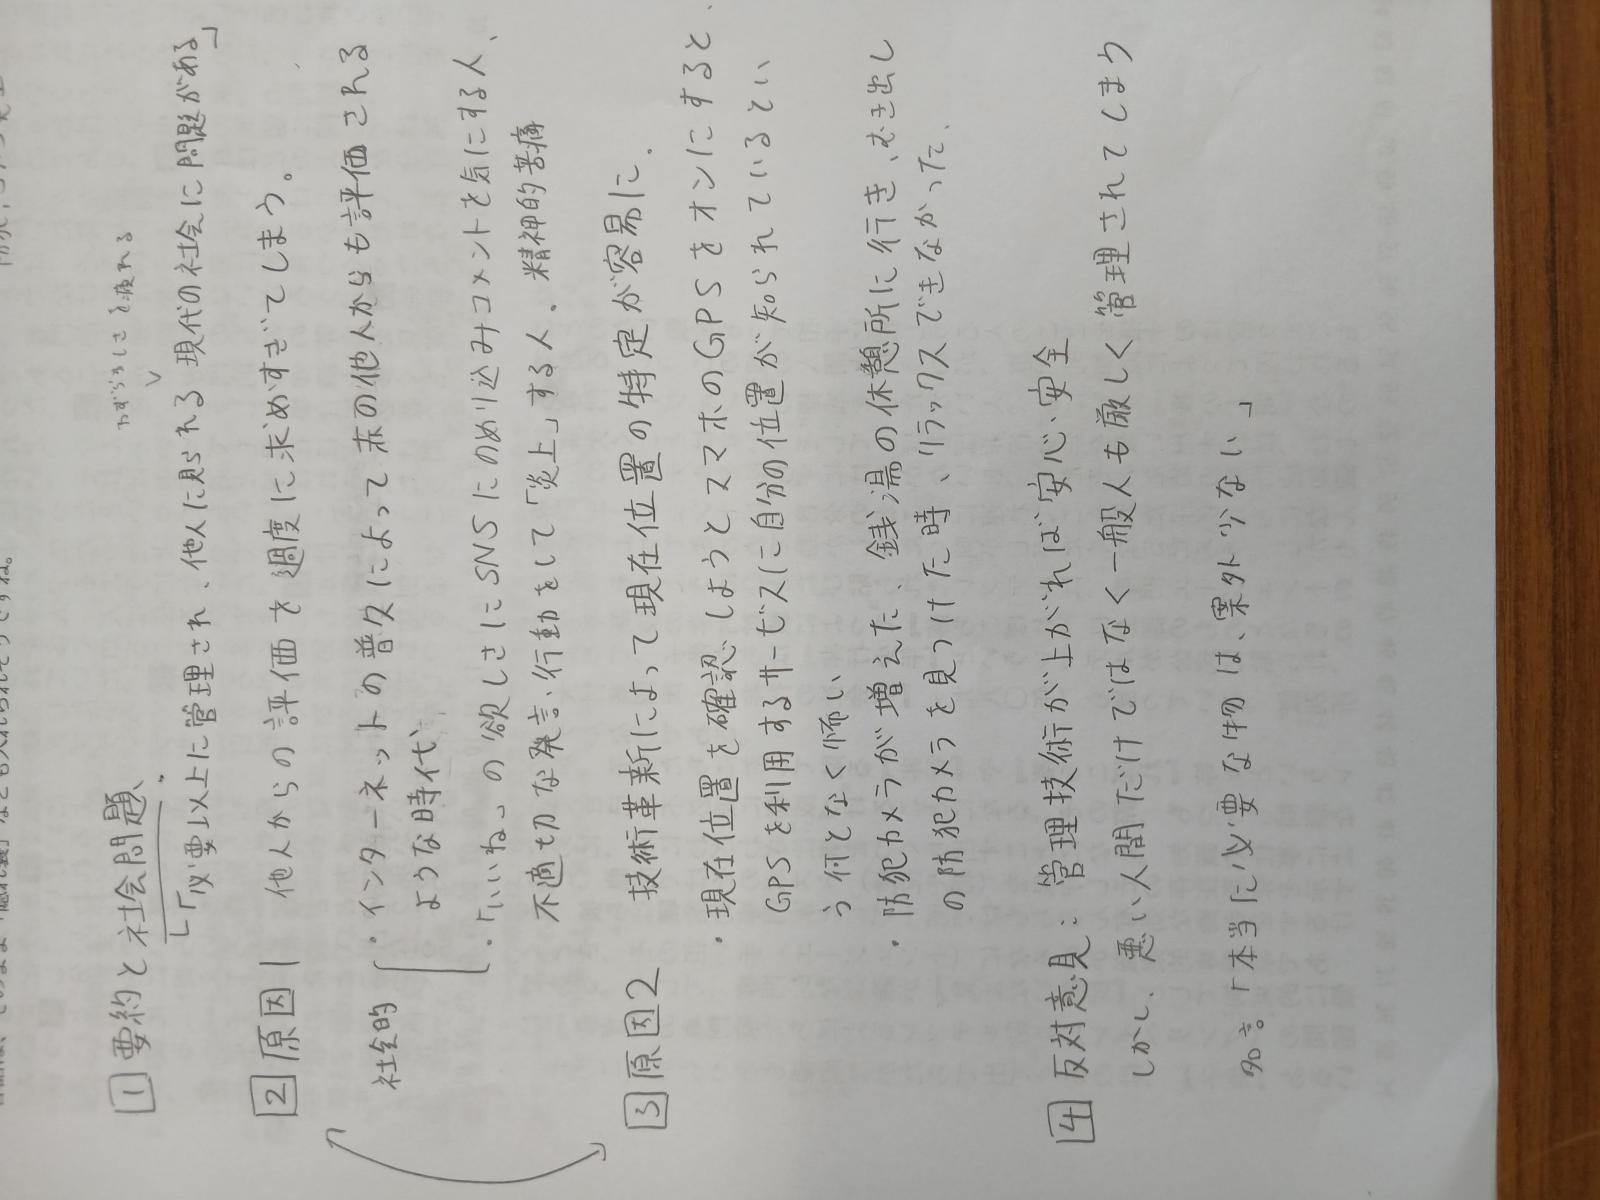 わずらわしさを疲れる
1 要約と社会問題、
「必要以上に管理され、他人に見られる現代の社会に問題がある」
2 原因1 他人からの評価を過度に求めすぎてしまう。
社会的
・インターネットの普及によって赤の他人からも評価される
ような時代
・「いいね」の欲しさにSNSにのめり込みコメントを気にする人、
不適切な発言、行動をして「炎上」する人. 精神的苦痛
3 原因2 技術革新によって現在位置の特定が容易に.
・現在位置を確認しようとスマホのGPSをオンにすると、
GPSを利用するサービスに自分の位置が知られているとい
う何となく怖い
・防犯カメラが増えた、銭湯の休憩所に行き、むき出し
の防犯カメラを見つけた時、リラックスできなかった.
4 反対意見: 管理技術が上がれば安心、安全
しかし、悪い人間だけではなく一般人も厳しく管理されてしまう
「本当に必要な物は、案外少ない」